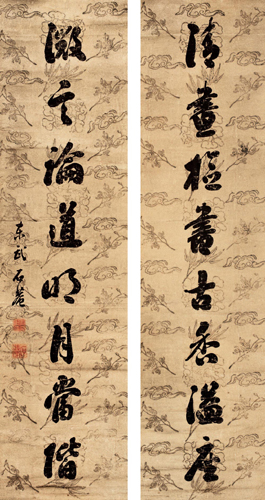 清晝檢書古香溢座
微言論道明月當階
東武石菴